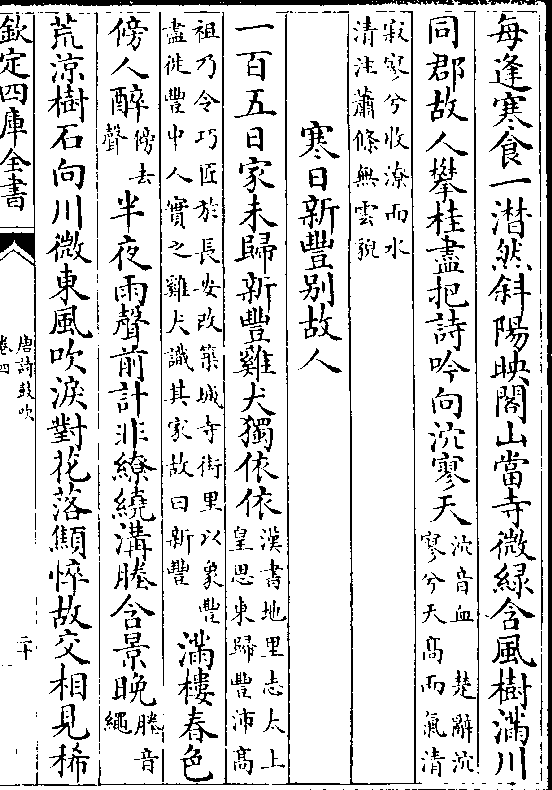 每逢寒食一潸然斜陽映閣山當寺微緑含風樹滿川
同郡故人攀桂盡把詩吟向泬寥天泬音血 楚辭泬
寥兮天髙而氣清
寂寥兮收潦而水
清注蕭條無雲貌
寒日新豐别故人
一百五日家未歸新豐雞犬獨依依漢書地里志太上
皇思東歸豐沛髙
祖乃令巧匠於長安改築城寺街里以象豐
盡徙豐中人實之雞犬識其家故曰新豐
滿樓春色
傍人醉傍去
聲
半夜雨聲前計非繚繞溝塍含景晚塍音
繩
荒涼樹石向川微東風吹淚對花落顦悴故交相見稀
欽定四庫全書
唐詩鼓吹
卷四
二十